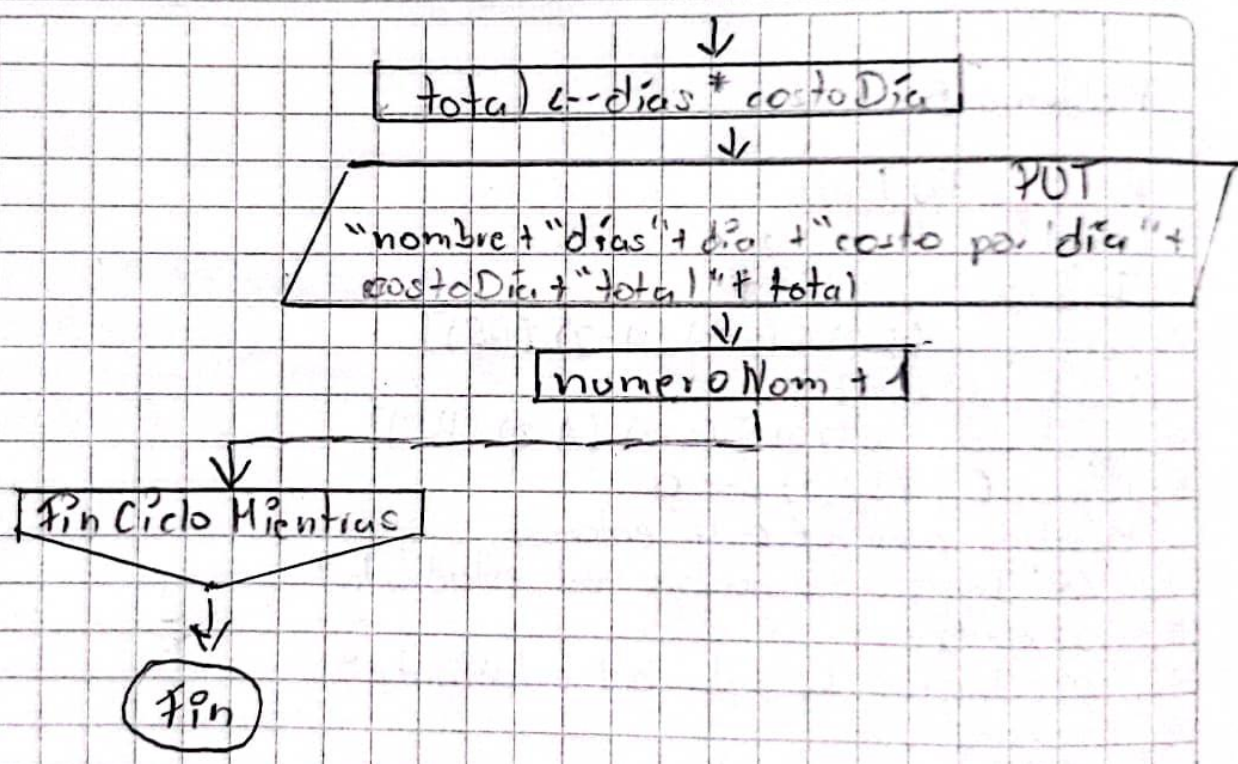 total <-- días * costoDía
PUT
"nombre + "días" + día + "costo por día" +
costoDía + "total" + total
numeroNom + 1
Fin Ciclo Mientras
Fin